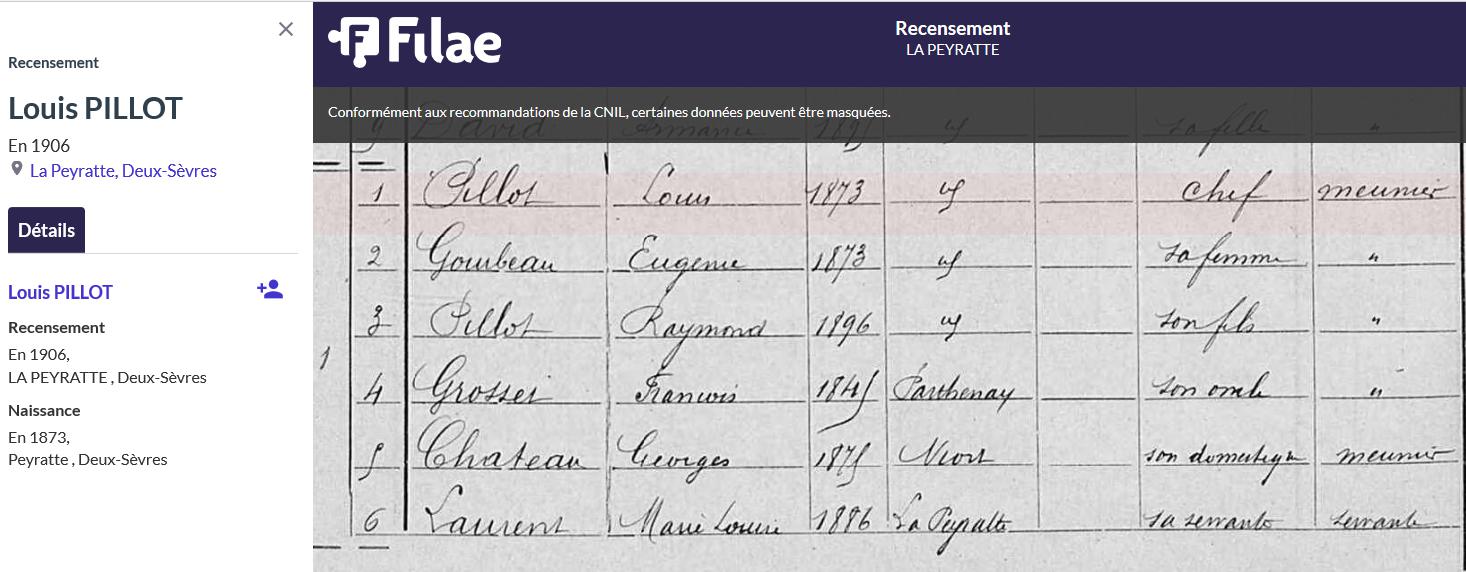 Recensement
Louis PILLOT
En 1906
La Peyratte, Deux-Sèvres
Détails
Louis PILLOT
Recensement
En 1906,
LA PEYRATTE , Deux-Sèvres
Naissance
En 1873,
Peyratte , Deux-Sèvres
Filae
Recensement
LA PEYRATTE
Conformément aux recommandations de la CNIL, certaines données peuvent être masquées.
David sa fille "
1 Pillot Louis 1873 chef meunier
2 Goubeau Eugenie 1873 sa femme "
3 Pillot Raymond 1896 son fils "
1
4 Grosset Francois 1845 Parthenay son oncle "
5 Chateau Georges 1875 Niort son domestique meunier
6 Laurent Marie Louise 1886 La Peyratte sa servante servante